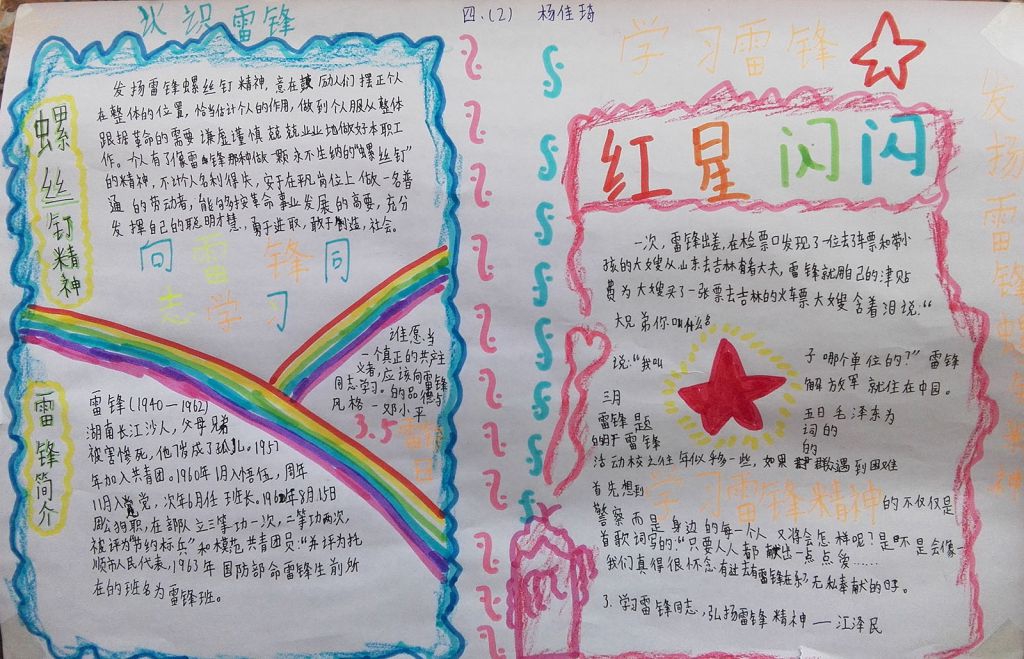 认识雷锋
四.(2) 杨佳琦
螺丝钉精神
发扬雷锋螺丝钉精神,意在鼓励人们摆正个人
在整体的位置,恰当估计个人的作用,做到个人服从整体
跟据革命的需要谦虚谨慎兢兢业业地做好本职工
作。个人有了像雷锋那种做一颗永不生纳的“螺丝钉”
的精神,不计个人名利得失,安于在平凡岗位上做一名普
通的劳动者,能够按革命事业发展的需要,充分
发挥自己的聪明才慧,勇于进取,敢于制造,社会。
向雷锋同
志学习
谁愿当
一个真正的共产主
义者,应该向雷锋
同志学习。的品德与
风格 — 邓小平
3.5
雷锋日
雷锋简介
雷锋(1940—1962)
湖南长江沙人,父母兄弟
被害惨死,他7岁成了孤儿。1957
年加入共青团。1960年1月入悟伍,周年
11月入党,次年6月任班长。1962年8月15日
周公殉职,在部队立三等功一次,二等功两次,
被评为“节约标兵”和模范共青团员:“并评为抚
顺市人民代表,1963年国防部命雷锋生前所
在的班名为雷锋班。
学习雷锋
红星闪闪
发扬雷锋螺丝钉精神
一次,雷锋出差,在检票口发现了一位丢了车票和带小
孩的大嫂从山东去吉林看丈夫,雷锋就用自己的津贴
费为大嫂买了一张票去吉林的火车票大嫂含着泪说:“
大兄弟你叫什么名
子哪个单位的?”雷锋
说:“我叫
解放军就住在中国。
三月
五日毛泽东为
雷锋题
词的
的
活动校之往年似乎多一些,如果
遇到困难
首先想到
学习雷锋精神
的不仅仅是
警察而是身边的每一个人又得会怎样呢?是不是会像一
首歌词写的:“只要人人都献出一点点爱……
我们真得很怀念有过去有雷锋在
无私奉献的日子。
3.学习雷锋同志,弘扬雷锋精神 — 江泽民